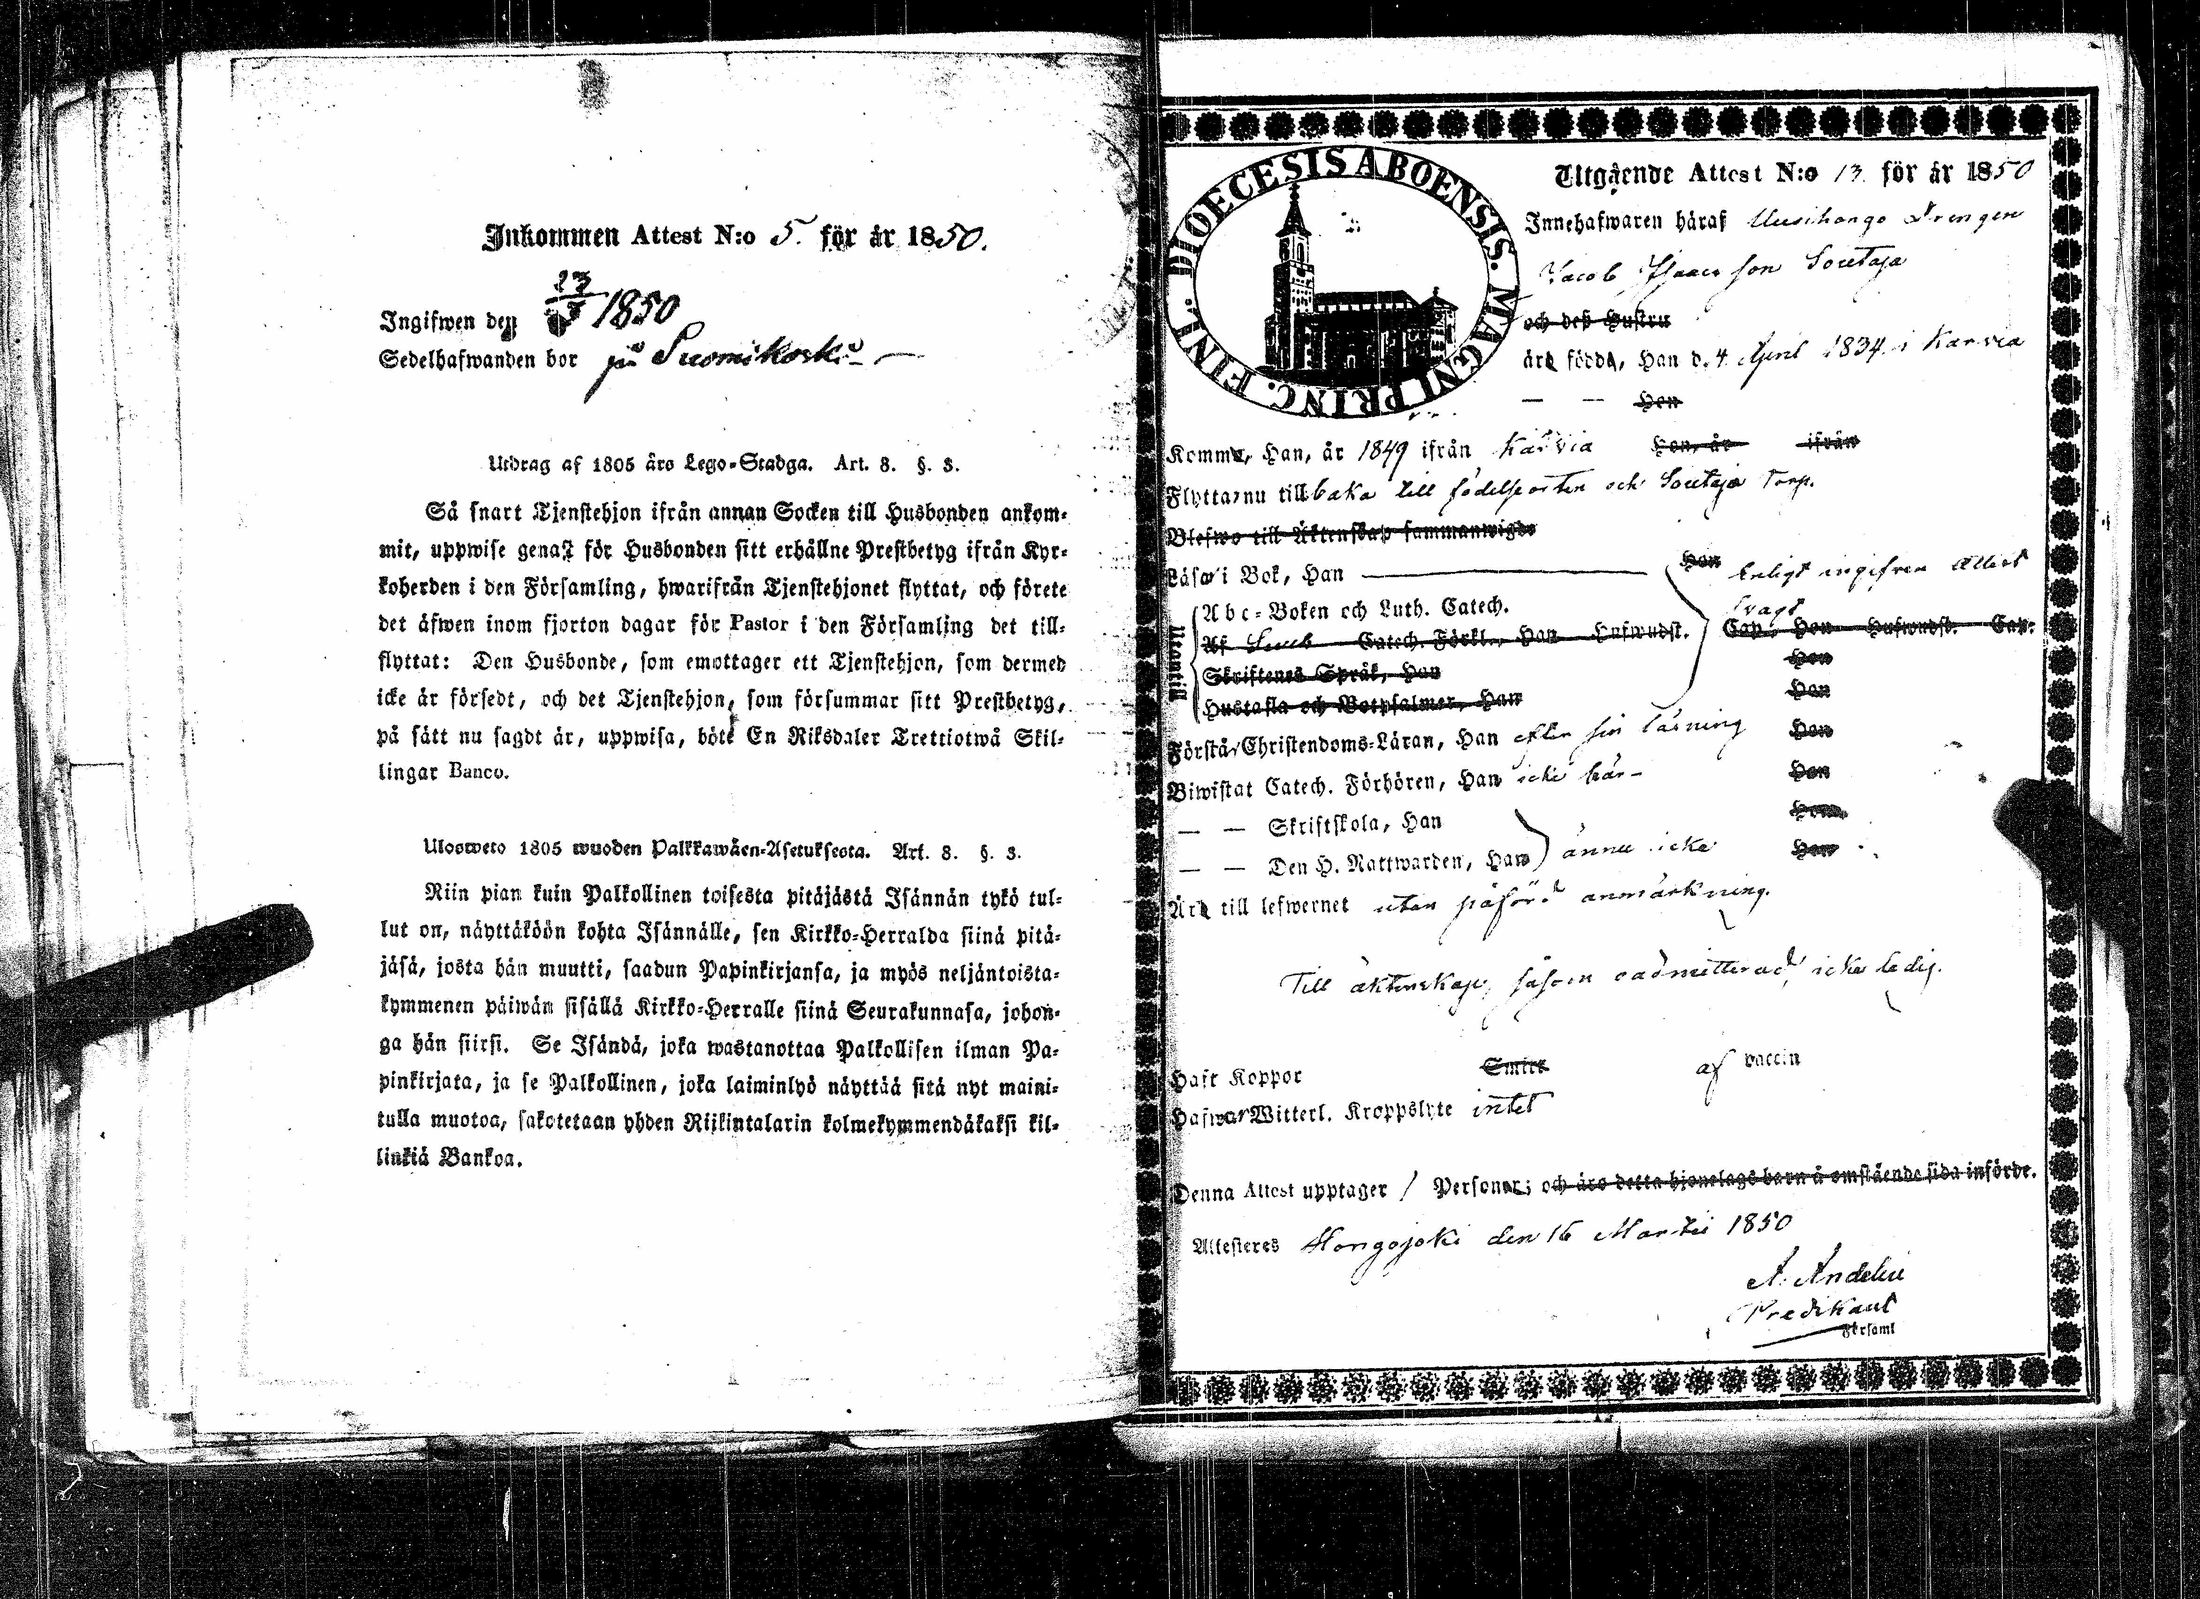 Inkommen Attest N:o 5. för år 1850.
Ingifwen den 23/3 1850
Sedelhafwanden bor på Suomikoski
Utdrag af 1805 års Lego-Stadga. Art. 8. §. 3.
Så snart Tjenstehjon ifrån annan Socken till Husbonden ankom-
mit, uppwise genast för Husbonden sitt erhållne Prestbetyg ifrån Kyr-
koherden i den Församling, hwarifrån Tjenstehjonet flyttat, och förete
det äfwen inom fjorton dagar för Pastor i den Församling det till-
flyttat: Den Husbonde, som emottager ett Tjenstehjon, som dermed
icke är försedt, och det Tjenstehjon, som försummar sitt Prestbetyg,
på sätt nu sagdt är, uppwisa, böte En Riksdaler Trettiotwå Skil-
lingar Banco.
Ulosweto 1805 wuoden Palkkawäen-Asetuksesta. Art. 8. §. 3.
Niin pian kuin Palkollinen toisesta pitäjästä Isännän tykö tul-
lut on, näyttäköön kohta Isännälle, sen Kirkko-Herralda siinä pitä-
jäsä, josta hän muutti, saadun Papinkirjansa, ja myös neljäntoista-
kymmenen päiwän sisällä Kirkko-Herralle siinä Seurakunnasa, johon-
ga hän siirsi. Se Isändä, joka wastanottaa Palkollisen ilman Pa-
pinkirjata, ja se Palkollinen, joka laiminlyö näyttää sitä nyt maini-
tulla muotoa, sakotetaan yhden Riikintalarin kolmekymmendäkaksi kil-
linkiä Bankoa.
DIOECESIS ABOENSIS. MAGNI PRINC. FINL.
Utgående Attest N:o 13. för år 1850
Innehafwaren häraf Uusihongo Drengen
Jacob Isaacsson Soretaja
och deß Hustru
är född, Han d. 4 April 1834 i Karvia
— — Hon
Komm, Han, år 1849 ifrån Karvia Hon, år ifrån
Flyttar nu tillbaka till födelseorten och Soretaja Torp.
Blefwo till Äktenskap sammanwigde
Läsa i Bok, Han Hon enligt ingifven Attest
svagt
Utantill
Abc-Boken och Luth. Catech.
Af Catech. Förkl., Han Hufwudst. Cap., Hon Hufwudst. Cap.
Skriftenes Språk, Han Hon
Hustafla och Botpsalmer, Han Hon
Förstår Christendoms-Läran, Han efter sin läsning Hon
Biwistat Catech. Förhören, Han icke här Hon
— — Skriftskola, Han Hon
— — Den H. Nattwarden, Han ännu icke Hon
Är till lefwernet utan påförd anmärkning.
Till äktenskap, såsom oadmitterad, icke ledig.
Haft Koppor Smitt af vaccin
Hafwer Witterl. Kroppslyte intet
Denna Attest upptager 1 Personer; och äro detta hjonelags barn å omstående sida införde.
Attesteras Hongojoki den 16 Martii 1850
A. Andelin
Predikant
Församl